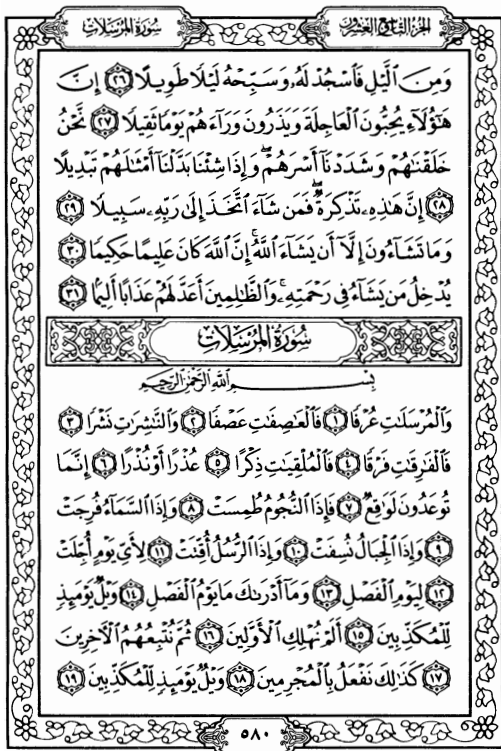 الجزء التاسع والعشرون
سورة المرسلات
وَمِنَ ٱلَّيْلِ فَٱسْجُدْ لَهُۥ وَسَبِّحْهُ لَيْلًا طَوِيلًا ٢٦ إِنَّ
هَٰٓؤُلَآءِ يُحِبُّونَ ٱلْعَاجِلَةَ وَيَذَرُونَ وَرَآءَهُمْ يَوْمًا ثَقِيلًا ٢٧ نَّحْنُ
خَلَقْنَٰهُمْ وَشَدَدْنَآ أَسْرَهُمْ ۖ وَإِذَا شِئْنَا بَدَّلْنَآ أَمْثَٰلَهُمْ تَبْدِيلًا
٢٨ إِنَّ هَٰذِهِۦ تَذْكِرَةٌ ۖ فَمَن شَآءَ ٱتَّخَذَ إِلَىٰ رَبِّهِۦ سَبِيلًا ٢٩
وَمَا تَشَآءُونَ إِلَّآ أَن يَشَآءَ ٱللَّهُ ۚ إِنَّ ٱللَّهَ كَانَ عَلِيمًا حَكِيمًا ٣٠
يُدْخِلُ مَن يَشَآءُ فِى رَحْمَتِهِۦ ۚ وَٱلظَّٰلِمِينَ أَعَدَّ لَهُمْ عَذَابًا أَلِيمًا ٣١
سورة المرسلات
بِسْمِ ٱللَّهِ ٱلرَّحْمَٰنِ ٱلرَّحِيمِ
وَٱلْمُرْسَلَٰتِ عُرْفًا ١ فَٱلْعَٰصِفَٰتِ عَصْفًا ٢ وَٱلنَّٰشِرَٰتِ نَشْرًا ٣
فَٱلْفَٰرِقَٰتِ فَرْقًا ٤ فَٱلْمُلْقِيَٰتِ ذِكْرًا ٥ عُذْرًا أَوْ نُذْرًا ٦ إِنَّمَا
تُوعَدُونَ لَوَٰقِعٌ ٧ فَإِذَا ٱلنُّجُومُ طُمِسَتْ ٨ وَإِذَا ٱلسَّمَآءُ فُرِجَتْ
٩ وَإِذَا ٱلْجِبَالُ نُسِفَتْ ١٠ وَإِذَا ٱلرُّسُلُ أُقِّتَتْ ١١ لِأَىِّ يَوْمٍ أُجِّلَتْ
١٢ لِيَوْمِ ٱلْفَصْلِ ١٣ وَمَآ أَدْرَىٰكَ مَا يَوْمُ ٱلْفَصْلِ ١٤ وَيْلٌ يَوْمَئِذٍ
لِّلْمُكَذِّبِينَ ١٥ أَلَمْ نُهْلِكِ ٱلْأَوَّلِينَ ١٦ ثُمَّ نُتْبِعُهُمُ ٱلْءَاخِرِينَ
١٧ كَذَٰلِكَ نَفْعَلُ بِٱلْمُجْرِمِينَ ١٨ وَيْلٌ يَوْمَئِذٍ لِّلْمُكَذِّبِينَ ١٩
٥٨٠